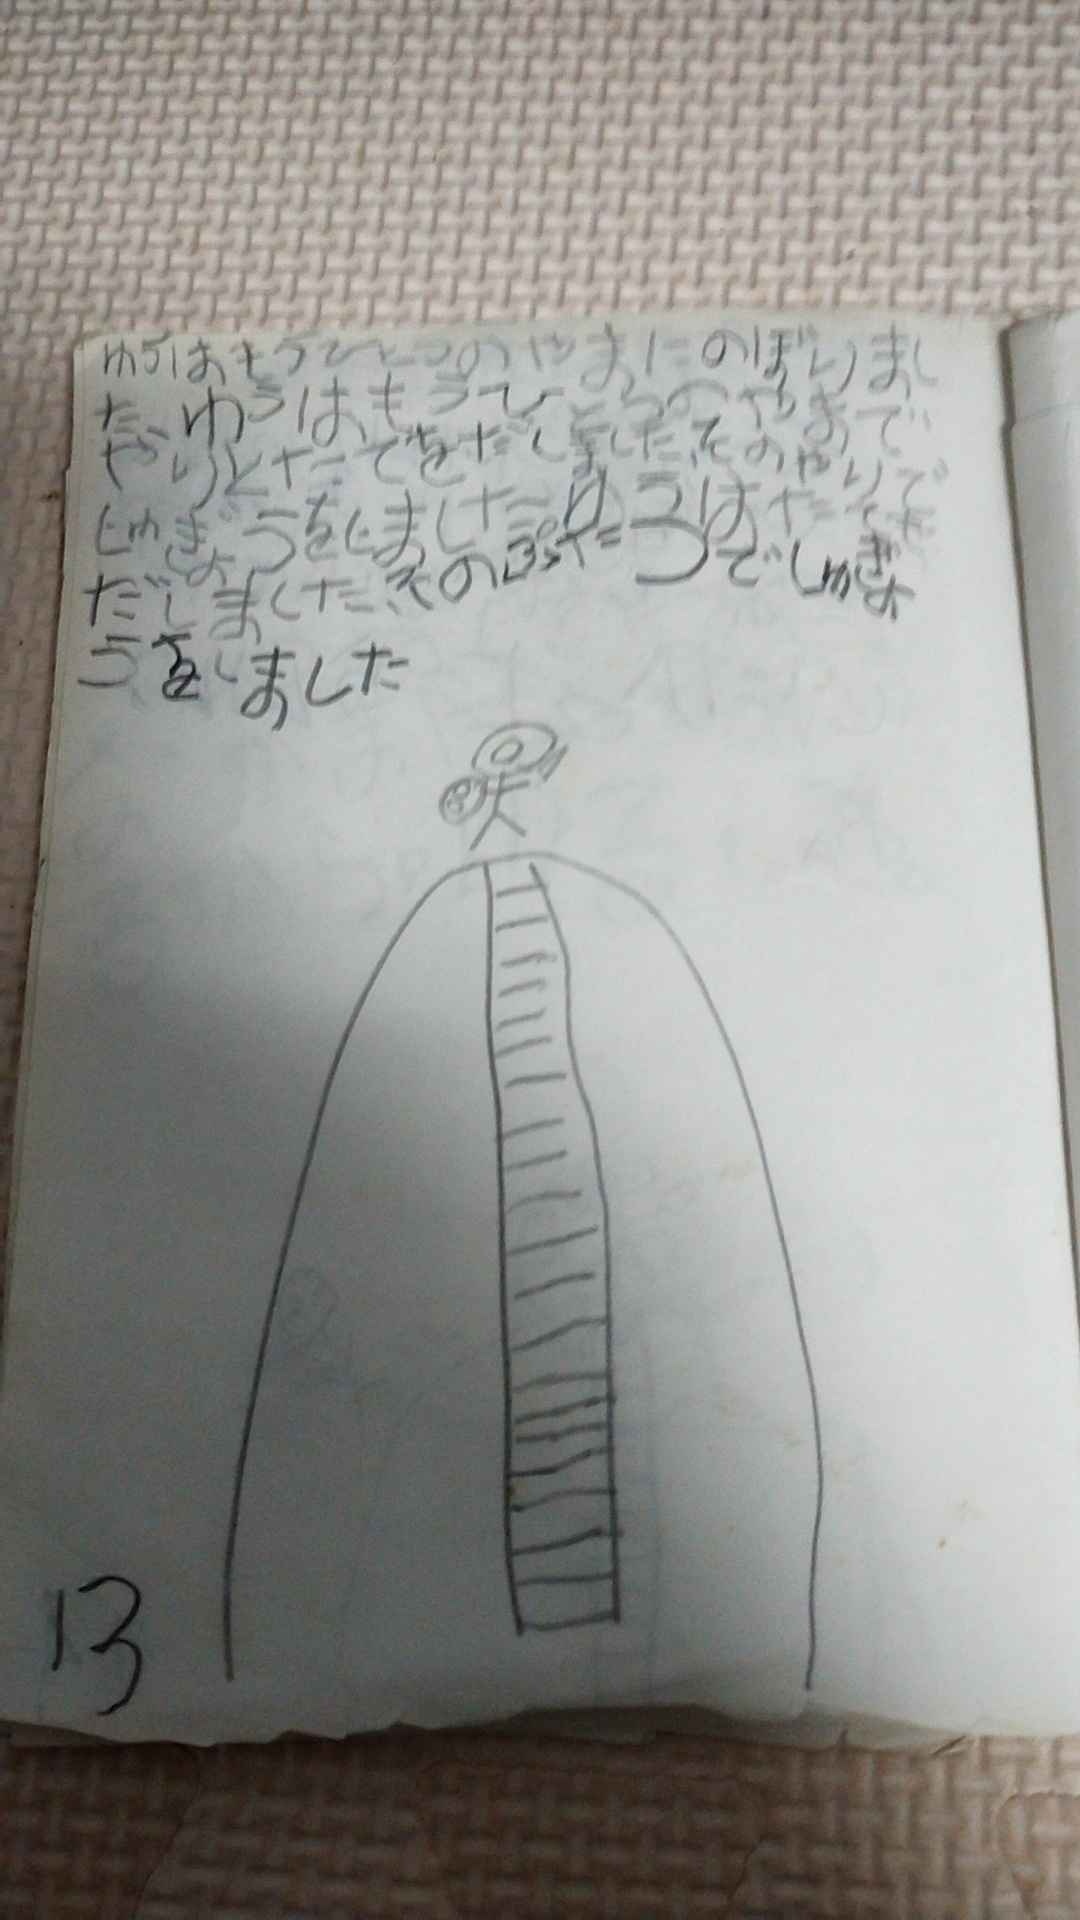 ゆうはもうひとつのやまにのぼりまし
た、ゆうはもうひとつのやまで
やりとたてをだしました、そのやりで
しゅぎょうをしましたゆうはたてを
だしましたそのふたつでしゅぎょ
うをしました
13